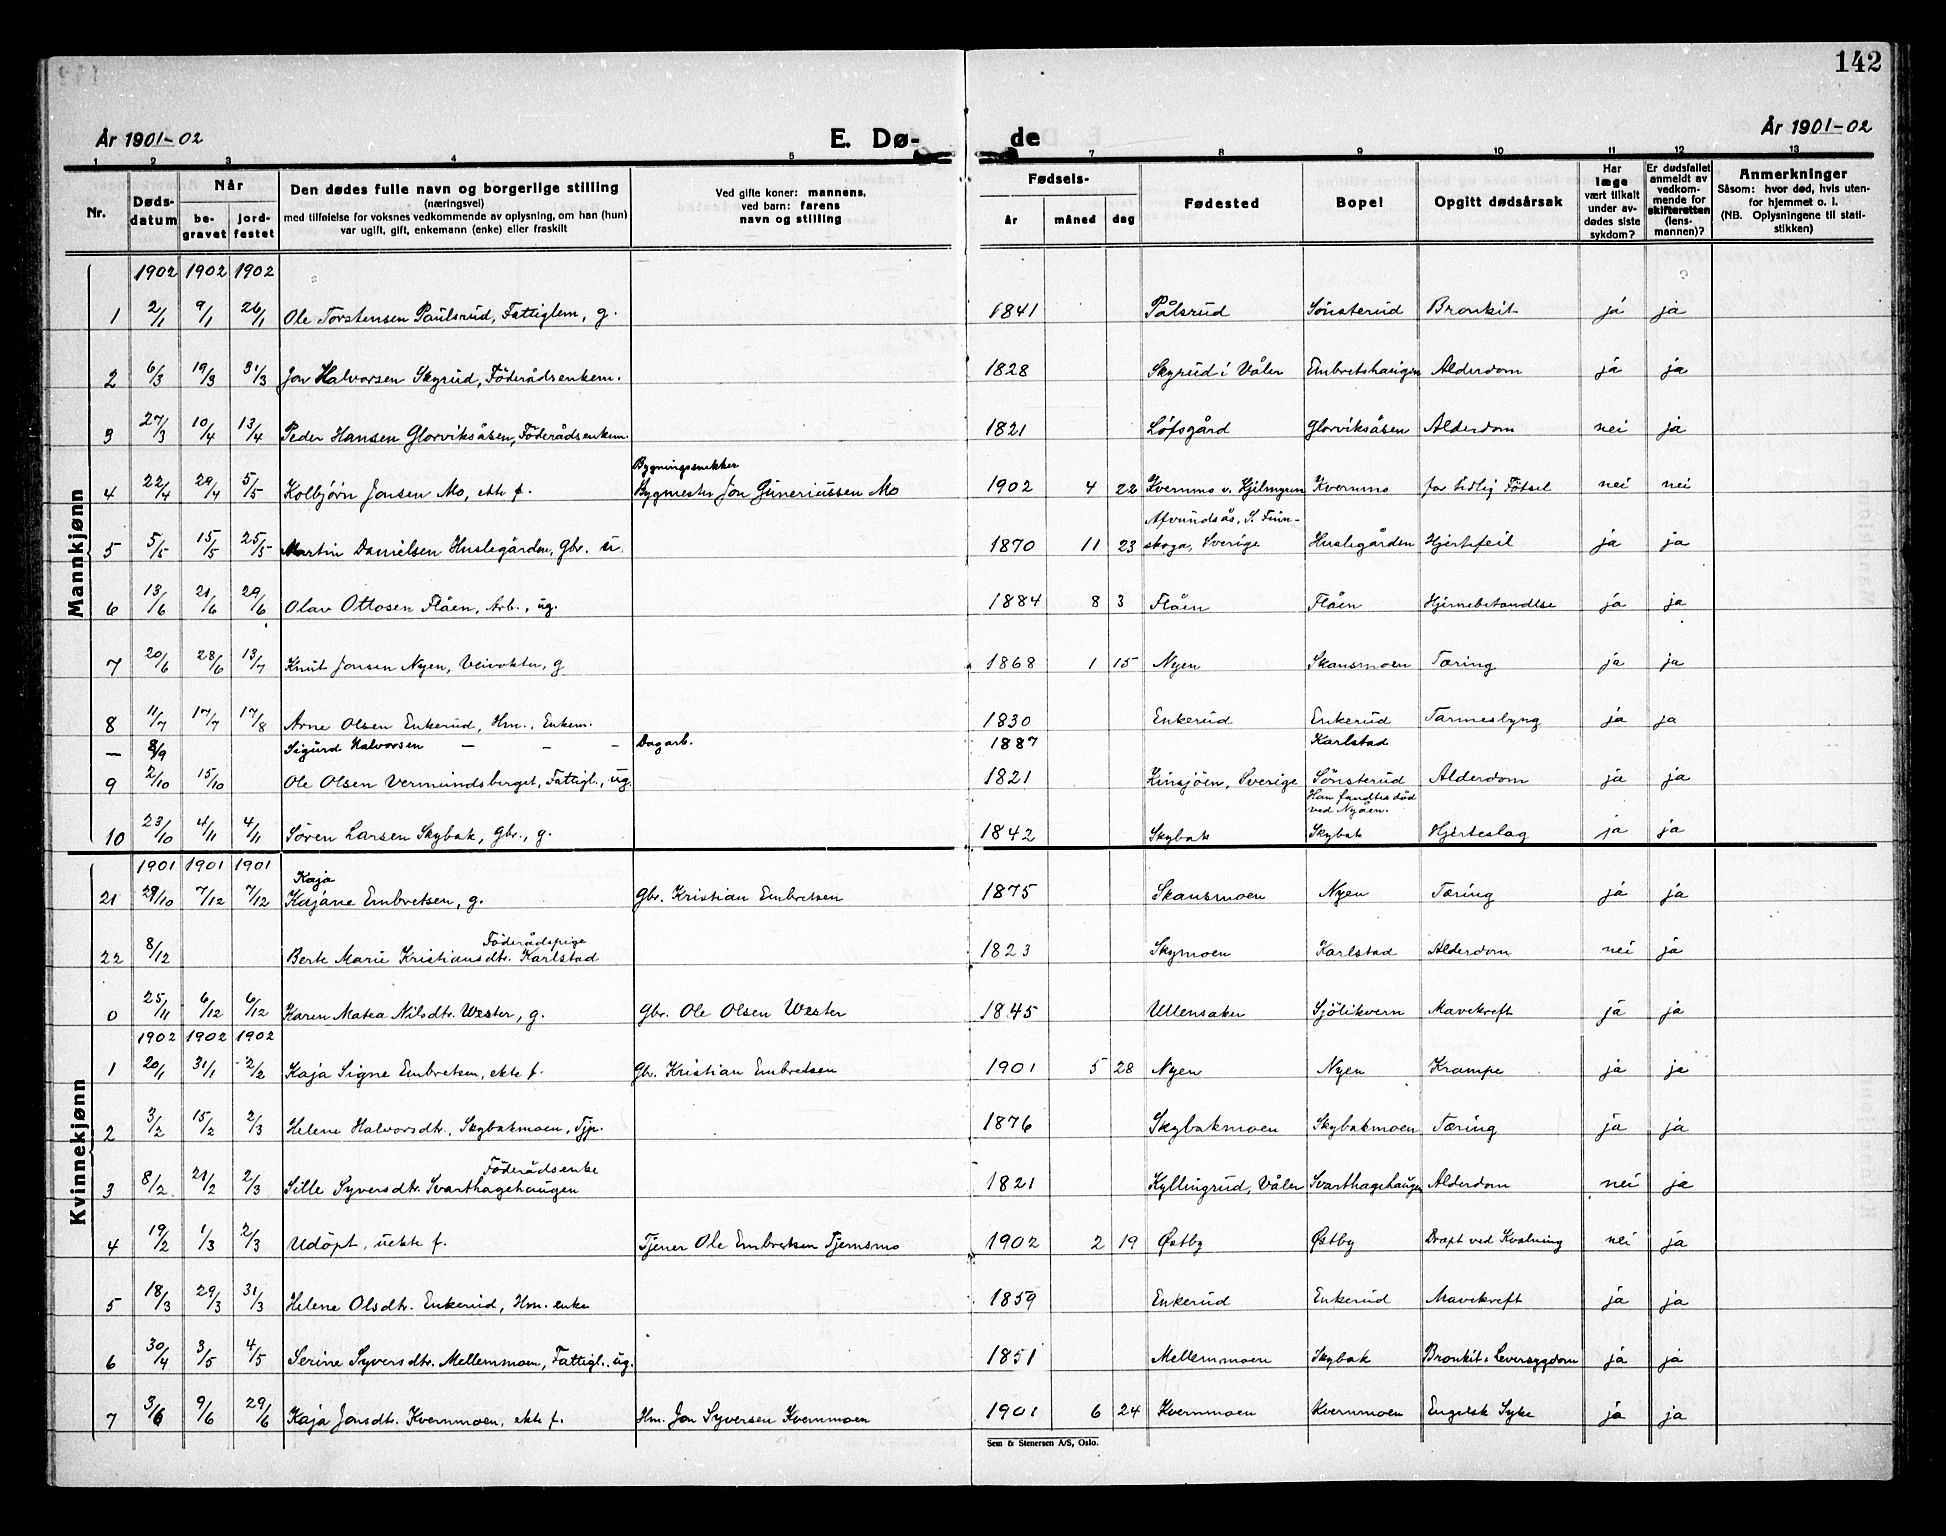 142
År 1901-02 E. Dø- de År 1901-02
1 2 3 4 5 7 8 9 10 11 12 13
Nr. Dødsdatum Når begravet jordfestet
Den dødes fulle navn og borgerlige stilling
(næringsvei)
med tilføielse for voksnes vedkommende av oplysning, om han (hun)
var ugift, gift, enkemann (enke) eller fraskilt
Ved gifte koner: mannens,
ved barn: farens
navn og stilling
Fødsels- år måned dag
Fødested
Bopel
Opgitt dødsårsak
Har læge vært tilkalt under avdødes siste sykdom?
Er dødsfallet anmeldt av vedkommende for skifteretten (lensmannen)?
Anmerkninger
Såsom: hvor død, hvis utenfor hjemmet o. l.
(NB. Oplysningene til statistikken)
Mannkjønn
1902 1902 1902
1 2/1 9/1 26/1 Ole Torstensen Paulsrud, Fattiglem, g. 1841 Pålsrud Sønsterud Bronkit ja ja
2 6/3 19/3 31/3 Jon Halvorsen Skyrud, Föderådsenkem. 1828 Skyrud i Våler Embretshaugen Alderdom ja ja
3 27/3 10/4 13/4 Peder Hansen Glorviksåsen, Föderådsenkem. 1821 Löfsgård Glorviksåsen Alderdom nei ja
Bygningssnekker
4 22/4 29/4 5/5 Kolbjørn Jonsen Mo, ekte f. Bygmester Jon Guneriussen Mo 1902 4 22 Kvernmo v. Hjelmyren Kvernmo for tidlig Fötsel nei nei
Afvundsås, S. Finn-
5 5/5 15/5 25/5 Martin Danielsen Huslegården, Gbr. u. 1870 11 23 skoga, Sverige Huslegården Hjertefeil ja ja
6 13/6 21/6 29/6 Olav Ottosen Flåen, Arb., ug. 1884 8 3 Flåen Flåen Hjernebetendlse ja ja
7 20/6 28/6 13/7 Knut Jonsen Nyen, Veivokter, g 1868 1 15 Nyen Skansmoen Tæring ja ja
8 11/7 17/7 17/8 Arne Olsen Enkerud, Hm., Enkem. 1830 Enkerud Enkerud Tarmeslyng ja ja
— 8/9 Sigurd Halvorsen — — — Dagarb. 1887 Karlstad
9 2/10 15/10 Ole Olsen Vermundsberget, Fattigl., ug. 1821 Kinsjöen, Sverige Sönsterud Alderdom ja ja
Han fandtes död
ved Nyåen.
10 23/10 4/11 4/11 Søren Larsen Skybak, Gbr., g. 1842 Skybak Skybak Hjerteslag ja ja
Kvinnekjønn
1901 1901 1901
Kaja
21 29/10 7/12 7/12 Kajane Embretsen, g. Gbr. Kristian Embretsen 1875 Skansmoen Nyen Tæring ja ja
Föderådspige
22 8/12 Berte Marie Kristiansdtr. Karlstad 1823 Skymoen Karlstad Alderdom nei ja
0 25/11 6/12 6/12 Karen Matea Nilsdtr. Wester, g. Gbr. Ole Olsen Wester 1845 Ullensaker Sjölikvern Mavekreft ja ja
1902 1902 1902
1 20/1 31/1 2/2 Kaja Signe Embretsen, ekte f. Gb. Kristian Embretsen 1901 5 28 Nyen Nyen Krampe ja ja
2 3/2 15/2 2/3 Helene Halvorsdtr., Skybakmoen, Tjp. 1876 Skybakmoen Skybakmoen Tæring ja ja
Föderådsenke
3 8/2 21/2 2/3 Sille Syversdtr. Svarthagehaugen 1821 Kyllingrud, Våler Svarthagehaugen Alderdom nei ja
4 19/2 1/3 2/3 Udöpt, uekte f. Tjener Ole Embretsen Tjernsmo 1902 2 19 Østby Østby Dræpt ved Kvælning nei ja
5 18/3 29/3 31/3 Helene Olsdtr. Enkerud, Hm. enke 1859 Enkerud Enkerud Mavekreft ja ja
6 30/4 3/5 4/5 Serine Syversdtr. Mellemmoen, Fattigl. ug. 1851 Mellemmoen Skybak Bronkit & Leversygdom ja ja
7 3/6 9/6 29/6 Kaja Jonsdtr. Kvernmoen, ekte f. Hm. Jon Syversen Kvernmoen 1901 6 24 Kvernmoen Kvernmoen Engelsk Syke ja ja
Sem & Stenersen A/S, Oslo.